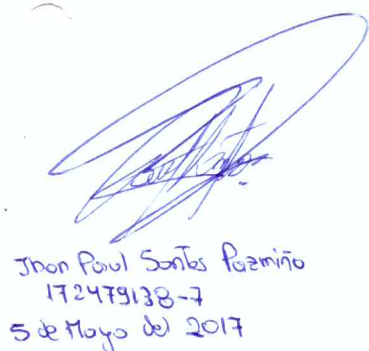 Jhon Paul Santos Pazmiño
172479138-7
5 de Mayo del 2017